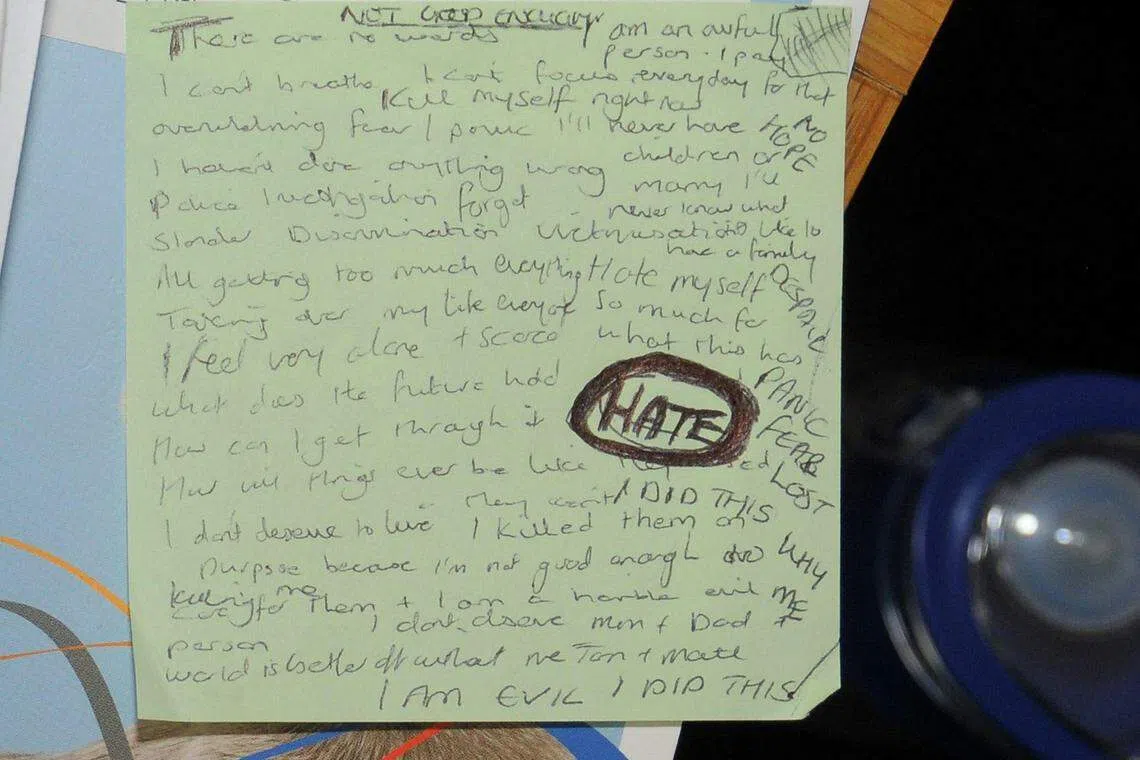 NOT GOOD ENOUGH
There are no words
I am an awful
person. I pay
I can't breathe I can't focus everyday for that
Kill myself right now
overwhelming fear / panic I'll never have
NO
HOPE
children or
I haven't done anything wrong
marry I'll
Police Investigation forget
never know what
Slander Discrimination Victimisation it's like to
have a family
All getting too much everything Hate myself
DESPAIR
Taking over my life so much for
I feel very alone + scared what this has
What does the future hold
HATE
PANIC
How can I get through it
FEAR
How will things ever be like they used
LOST
they won't I DID THIS
I don't deserve to live I killed them on
purpose because I'm not good enough to
WHY
ME
killing me
care for them + I am a horrible evil
I don't deserve Mum + Dad +
person
world is better off without me Tom + Matt
I AM EVIL I DID THIS